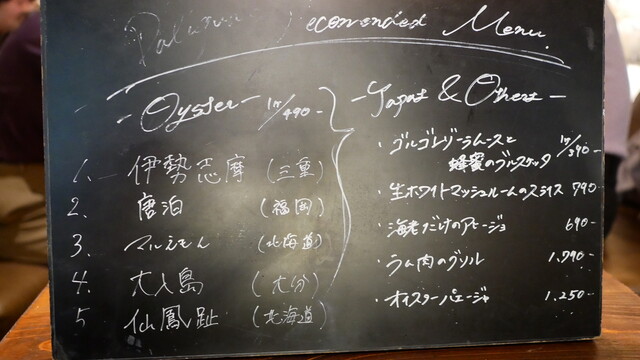 Recommended Menu.
- Oyster - 1P/490-
1. 伊勢志摩 (三重)
2. 唐泊 (福岡)
3. マルえもん (北海道)
4. 大入島 (大分)
5 仙鳳趾 (北海道)
- Tapas & Others -
・ゴルゴンゾーラムースと
蜂蜜のブルスケッタ 1P/390-
・生ホワイトマッシュルームのスライス 790-
・海老だけのアヒージョ 690-
・ラム肉のグリル 1.790-
・オイスターパエージャ 1.250-